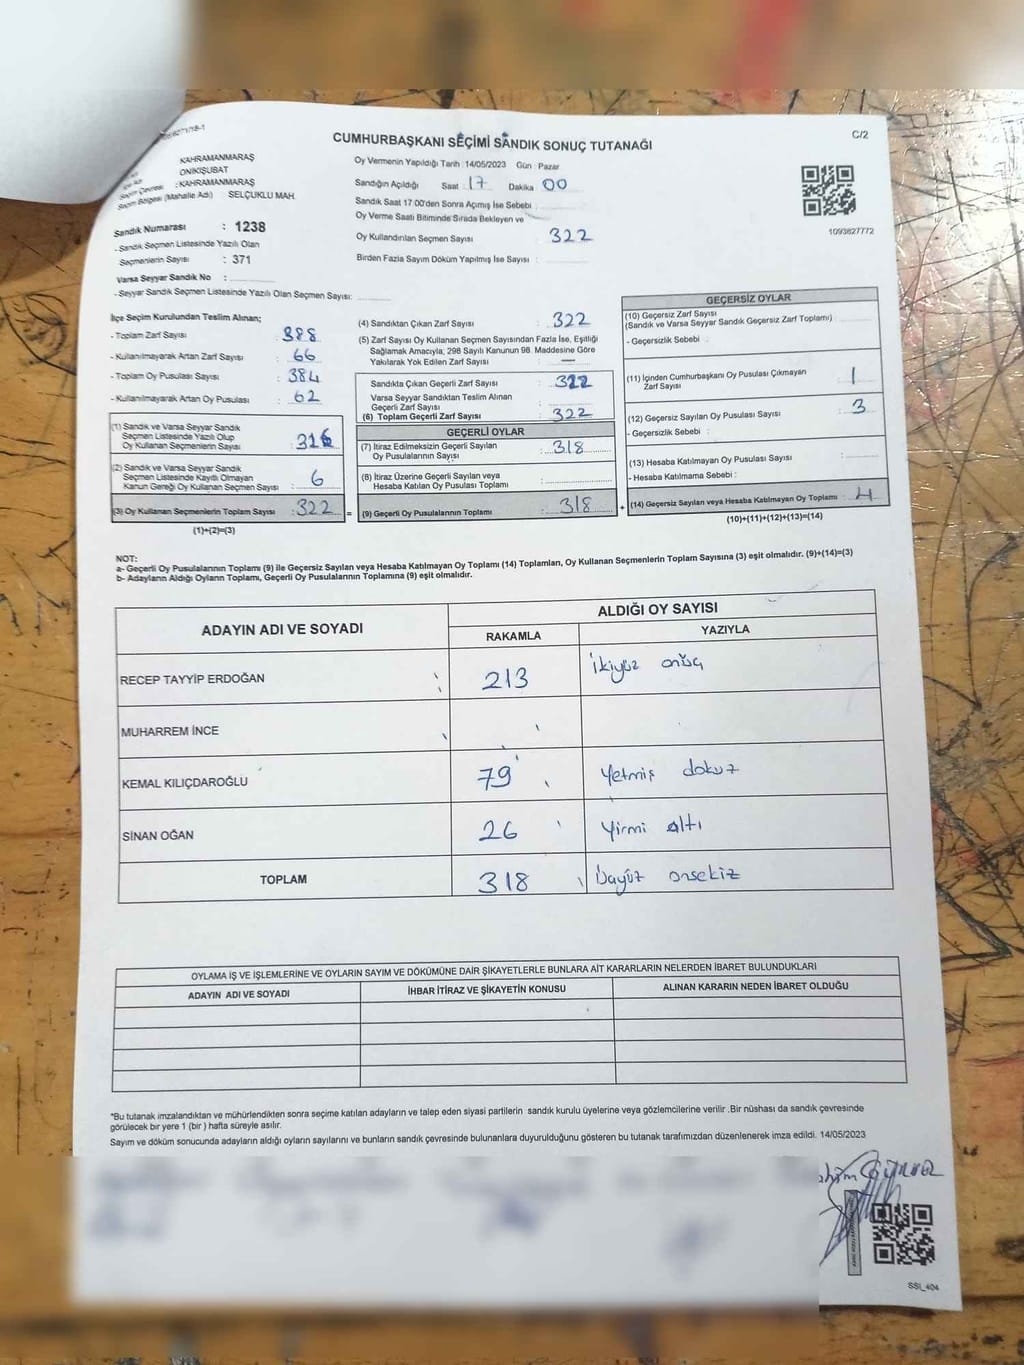 CUMHURBAŞKANI SEÇİMİ SANDIK SONUÇ TUTANAĞI
C/2
KAHRAMANMARAŞ
ONİKİŞUBAT
Seçim Çevresi : KAHRAMANMARAŞ
Seçim Bölgesi (Mahalle Adı) : SELÇUKLU MAH.
Sandık Numarası : 1238
-Sandık Seçmen Listesinde Yazılı Olan
Seçmenlerin Sayısı : 371
Varsa Seyyar Sandık No :
-Seyyar Sandık Seçmen Listesinde Yazılı Olan Seçmen Sayısı:
Oy Vermenin Yapıldığı Tarih :14/05/2023 Gün : Pazar
Sandığın Açıldığı Saat 17 Dakika 00
Sandık Saat 17:00'den Sonra Açımış İse Sebebi
Oy Verme Saati Bitiminde Sırada Bekleyen ve
Oy Kullandırılan Seçmen Sayısı : 322
Birden Fazla Sayım Döküm Yapılmış İse Sayısı :
1093627772
İlçe Seçim Kurulundan Teslim Alınan;
- Toplam Zarf Sayısı : 388
- Kullanılmayarak Artan Zarf Sayısı : 66
- Toplam Oy Pusulası Sayısı : 384
- Kullanılmayarak Artan Oy Pusulası : 62
(1) Sandık ve Varsa Seyyar Sandık
Seçmen Listesinde Yazılı Olup
Oy Kullanan Seçmenlerin Sayısı : 316
(2) Sandık ve Varsa Seyyar Sandık
Seçmen Listesinde Kayıtlı Olmayan
Kanun Gereği Oy Kullanan Seçmen Sayısı : 6
(3) Oy Kullanan Seçmenlerin Toplam Sayısı : 322
(1)+(2)=(3)
(4) Sandıktan Çıkan Zarf Sayısı : 322
(5) Zarf Sayısı Oy Kullanan Seçmen Sayısından Fazla İse, Eşitliği
Sağlamak Amacıyla; 298 Sayılı Kanunun 98. Maddesine Göre
Yakılarak Yok Edilen Zarf Sayısı : —
Sandıkta Çıkan Geçerli Zarf Sayısı : 322
Varsa Seyyar Sandıktan Teslim Alınan
Geçerli Zarf Sayısı :
(6) Toplam Geçerli Zarf Sayısı : 322
GEÇERLİ OYLAR
(7) İtiraz Edilmeksizin Geçerli Sayılan
Oy Pusulasının Sayısı : 318
(8) İtiraz Üzerine Geçerli Sayılan veya
Hesaba Katılan Oy Pusulası Toplamı :
= (9) Geçerli Oy Pusulalarının Toplamı : 318
GEÇERSİZ OYLAR
(10) Geçersiz Zarf Sayısı
(Sandık ve Varsa Seyyar Sandık Geçersiz Zarf Toplamı) :
- Geçersizlik Sebebi :
(11) İçinden Cumhurbaşkanı Oy Pusulası Çıkmayan
Zarf Sayısı : 1
(12) Geçersiz Sayılan Oy Pusulası Sayısı : 3
- Geçersizlik Sebebi :
(13) Hesaba Katılmayan Oy Pusulası Sayısı :
- Hesaba Katılmama Sebebi :
+ (14) Geçersiz Sayılan veya Hesaba Katılmayan Oy Toplamı : 4
(10)+(11)+(12)+(13)=(14)
NOT:
a- Geçerli Oy Pusulalarının Toplamı (9) ile Geçersiz Sayılan veya Hesaba Katılmayan Oy Toplamı (14) Toplamları, Oy Kullanan Seçmenlerin Toplam Sayısına (3) eşit olmalıdır. (9)+(14)=(3)
b- Adayların Aldığı Oyların Toplamı, Geçerli Oy Pusulalarının Toplamına (9) eşit olmalıdır.
ADAYIN ADI VE SOYADI
ALDIĞI OY SAYISI
RAKAMLA YAZIYLA
RECEP TAYYİP ERDOĞAN 213 ikiyüz onüç
MUHARREM İNCE
KEMAL KILIÇDAROĞLU 79 Yetmiş dokuz
SİNAN OĞAN 26 Yirmi altı
TOPLAM 318 üçyüz onsekiz
OYLAMA İŞ VE İŞLEMLERİNE VE OYLARIN SAYIM VE DÖKÜMÜNE DAİR ŞİKAYETLERLE BUNLARA AİT KARARLARIN NELERDEN İBARET BULUNDUKLARI
ADAYIN ADI VE SOYADI İHBAR İTİRAZ VE ŞİKAYETİN KONUSU ALINAN KARARIN NEDEN İBARET OLDUĞU
*Bu tutanak imzalandıktan ve mühürlendikten sonra seçime katılan adayların ve talep eden siyasi partilerin sandık kurulu üyelerine veya gözlemcilerine verilir .Bir nüshası da sandık çevresinde
görülecek bir yere 1 (bir ) hafta süreyle asılır.
Sayım ve döküm sonucunda adayların aldığı oyların sayılarını ve bunların sandık çevresinde bulunanlara duyurulduğunu gösteren bu tutanak tarafımızdan düzenlenerek imza edildi. 14/05/2023
SSI_404